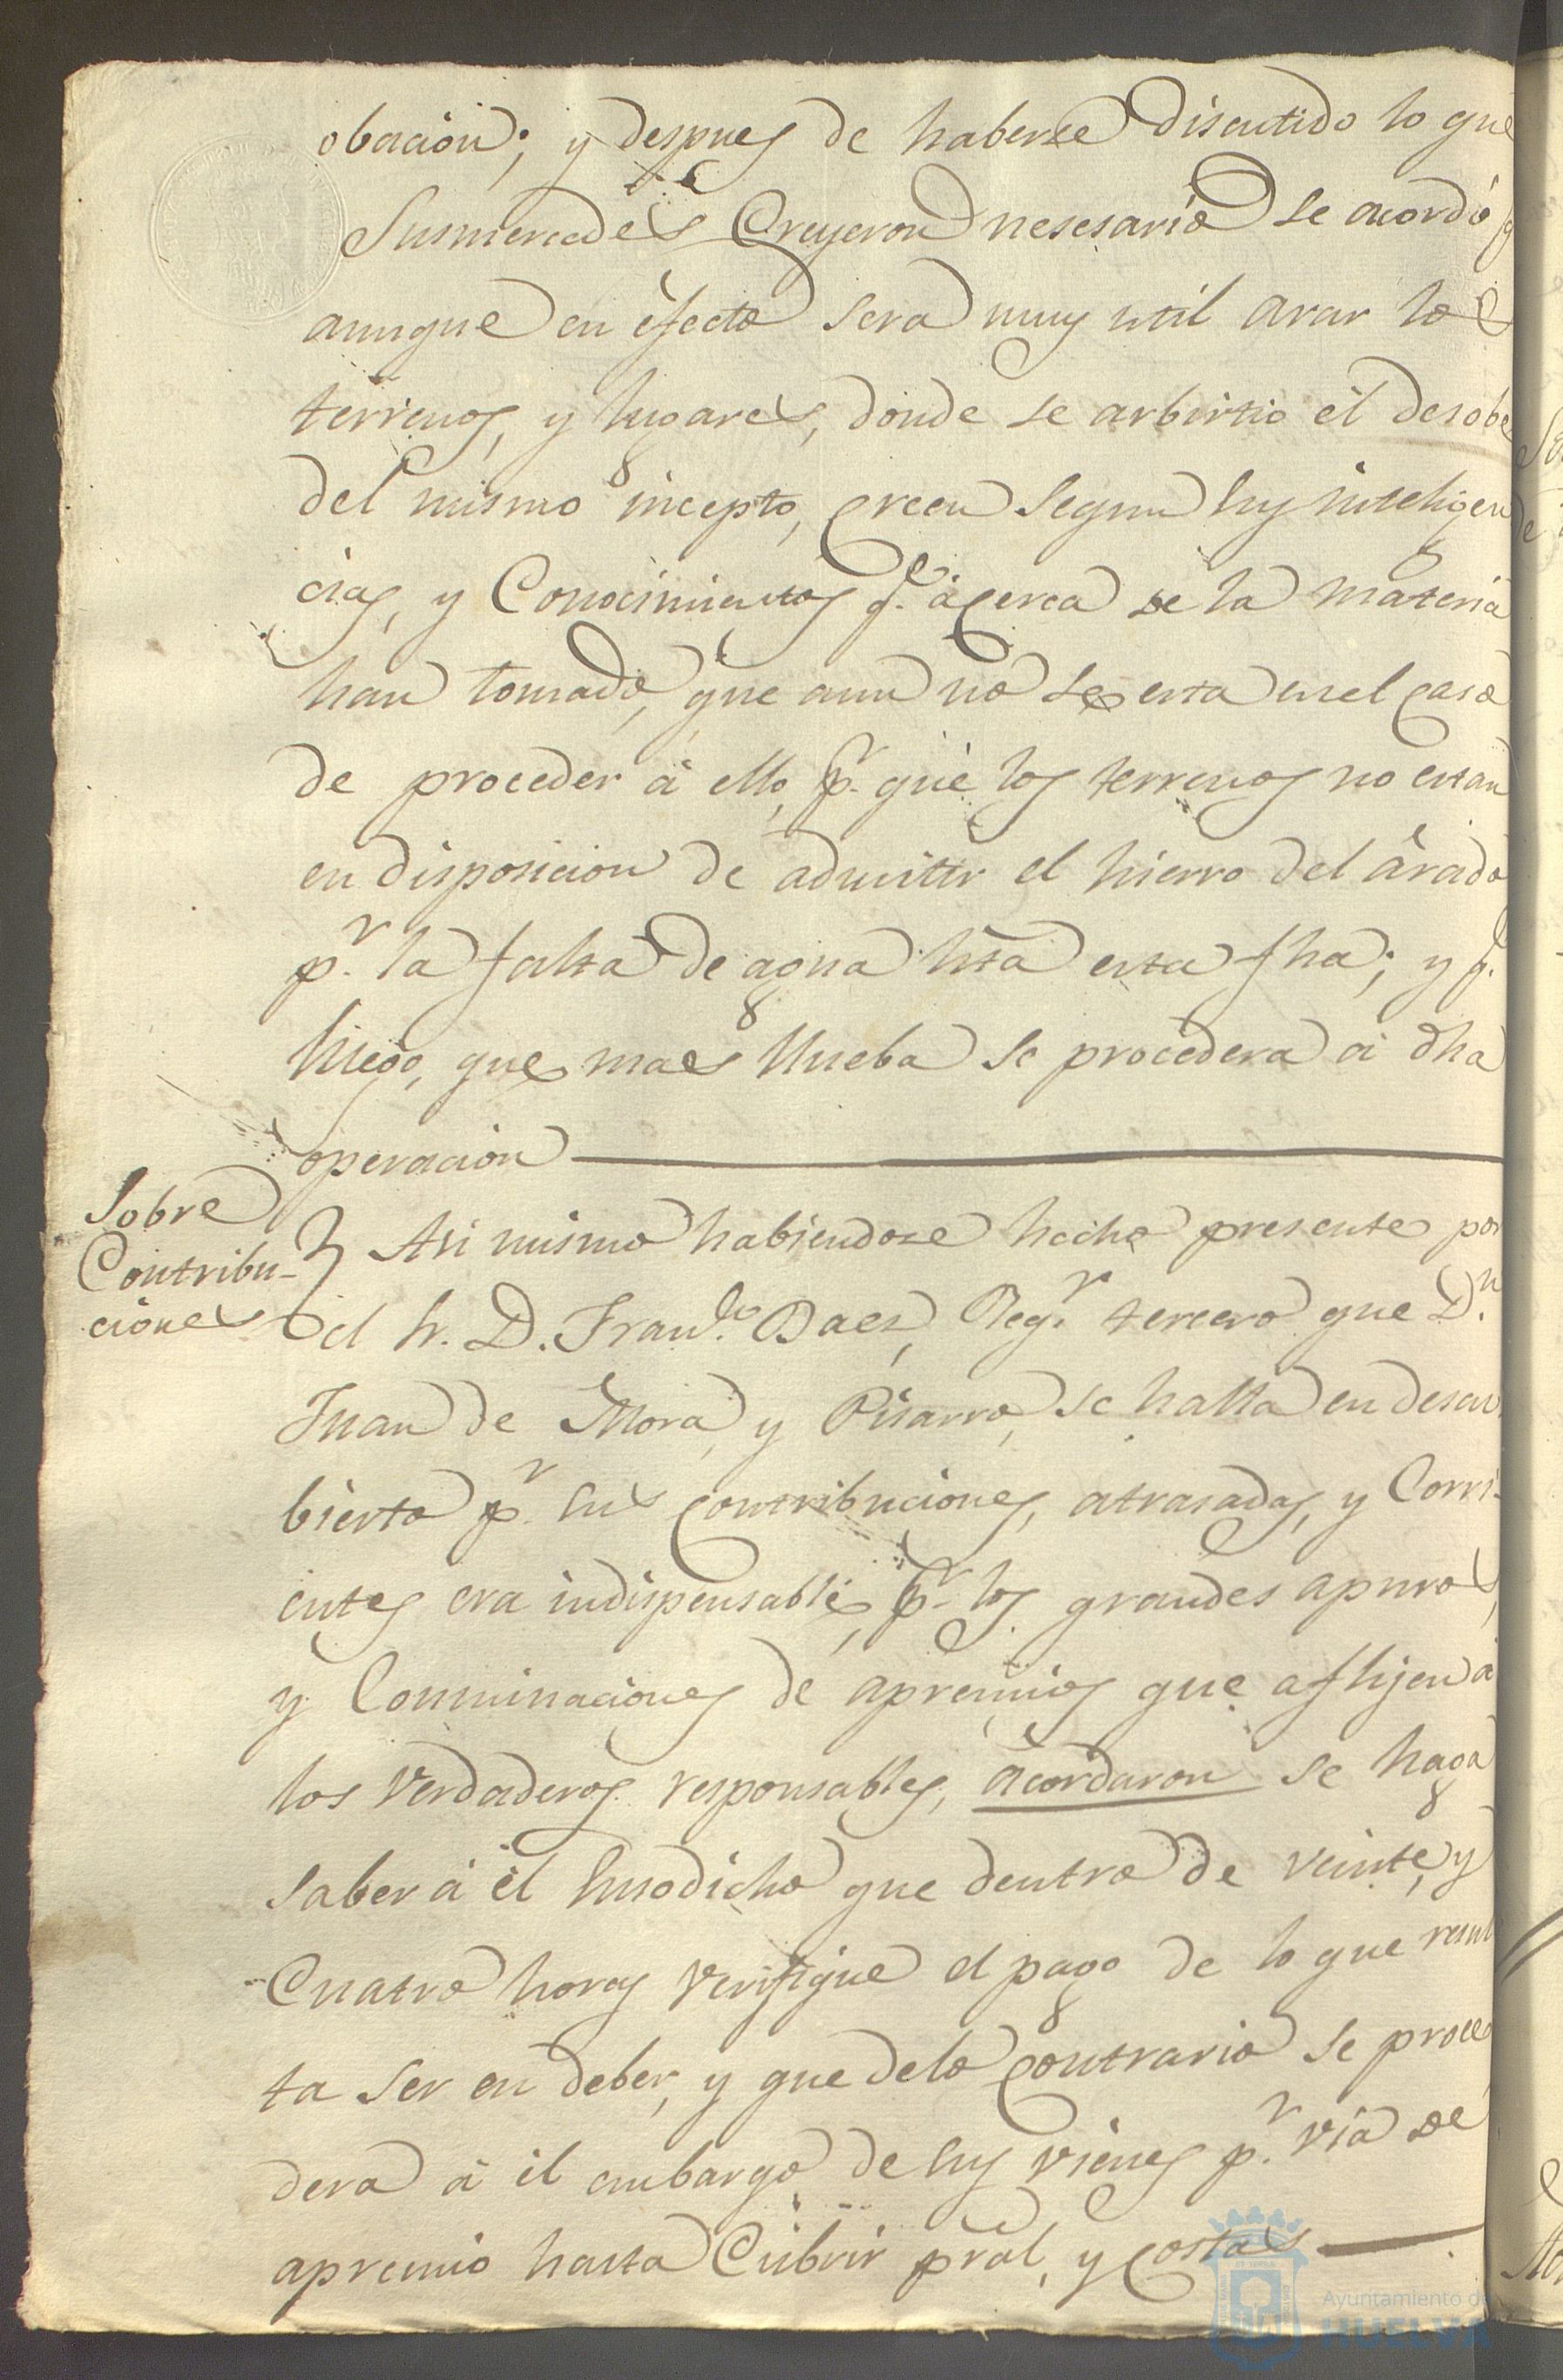 obacion; y despues de haberse discutido lo que
Susmercedes Creyeron nesesario se acordó q
aunque en efecto sera muy util arar los
terrenos, y lugares, donde se arbirtio el desobe
del mismo incepto, creen segun sus inteligen
cias, y Conocimientos q.e acerca de la materia
han tomado, que aun no se esta en el caso
de proceder á ello, p.r que los terrenos no estan
en disposicion de admitir el hierro del arado
p.r la falta de agua hta esta fha; y q.e
luego, que mas llueba se procedera á dha
operacion
Sobre
Contribu-
ciones
Asi mismo habiendose hecho presente por
el Sr. D. Fran.co Baez, Reg.r tercero que D.n
Juan de Mora, y Pisarro, se halla en descu
bierto p.r sus contribuciones, atrasadas, y Corri-
entes era indispensable, p.r los grandes apuros,
y Conminaciones de apremios que aflijen á
los verdaderos responsables, acordaron se haga
saber á el susodicho que dentro de veinte, y
Cuatro horas verifique el pago de lo que resul
ta ser en deber, y que delo contrario se proce
dera á el embargo de sus vienes p.r via de
apremio hasta Cubrir pral, y costas
Ayuntamiento de
HUELVA